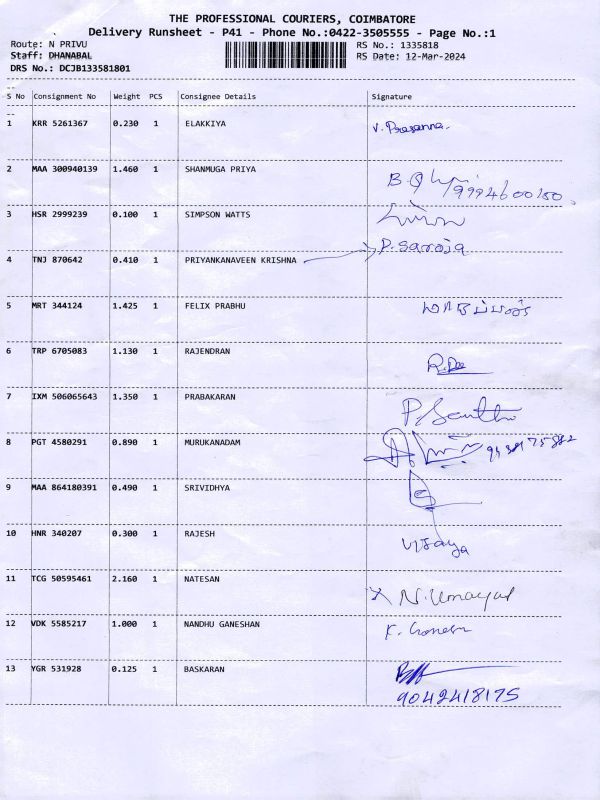 THE PROFESSIONAL COURIERS, COIMBATORE
Delivery Runsheet - P41 - Phone No.:0422-3505555 - Page No.:1
Route: N PRIVU RS No.: 1335818
Staff: DHANABAL RS Date: 12-Mar-2024
DRS No.: DCJB133581801
S No Consignment No Weight PCS Consignee Details Signature
1 KRR 5261367 0.230 1 ELAKKIYA V. Prasanna.
2 MAA 300940139 1.460 1 SHANMUGA PRIYA
3 HSR 2999239 0.100 1 SIMPSON WATTS
4 TNJ 870642 0.410 1 PRIYANKANAVEEN KRISHNA P. Saroja
5 MRT 344124 1.425 1 FELIX PRABHU
6 TRP 6705083 1.130 1 RAJENDRAN
7 IXM 506065643 1.350 1 PRABAKARAN
8 PGT 4580291 0.890 1 MURUKANADAM
9 MAA 864180391 0.490 1 SRIVIDHYA
10 HNR 340207 0.300 1 RAJESH Vijaya
11 TCG 50595461 2.160 1 NATESAN N. Umayal
12 VDK 5585217 1.000 1 NANDHU GANESHAN
13 YGR 531928 0.125 1 BASKARAN
9042418175